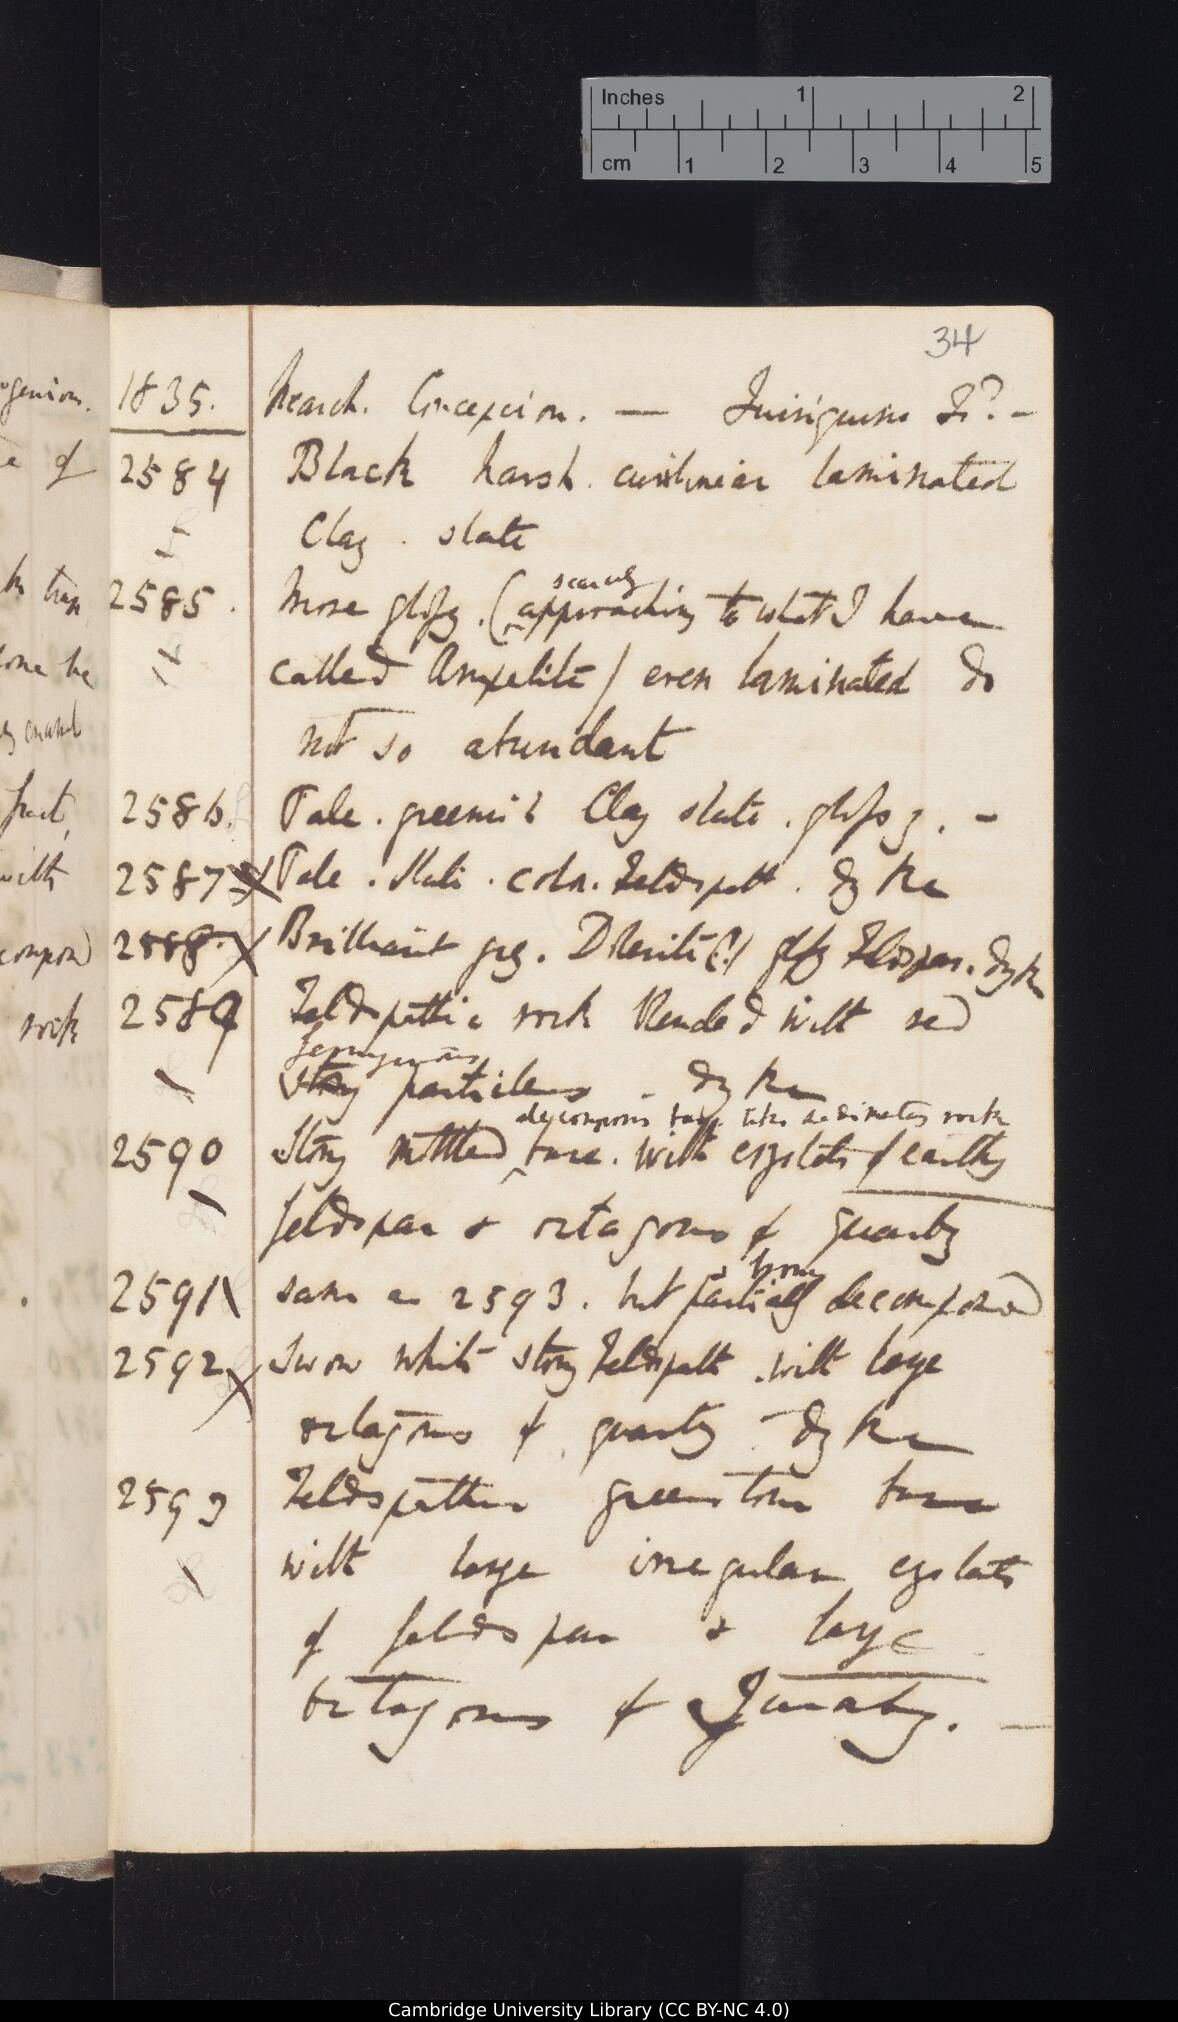 Inches 1 2
cm 1 2 3 4 5
34
1835. March. Concepcion. — Quiriquina Is? –
2584 Black harsh curvilinear laminated
Clay. slate
scarcely
2585. More glossy. (approaching to what I have
called Ampelite) even laminated do
not so abundant
2586. Pale. greenish Clay slate. glossy. –
2587 Pale. slate. colr. Feldspath. Dyke
2588. Brilliant grey. Dolerite (?) glassy Feldspar. Dyke
2589 Feldspathic rock blended with red
ferruginous
stony particles – Dyke
decomposes like sedimentary rock
2590 Stony mottled base. with crystals of earthy
feldspar & octagons of quartz
& brown
2591 same as 2593. but partially decomposed
2592 Snow white stony Feldspath. with large
octagons of quartz – Dyke
2593 Feldspathic greenstone base
with large irregular crystals
of feldspar & large
octagons of Quartz. —
ogenious.
of
tran
one he
with
rock
Cambridge University Library (CC BY-NC 4.0)